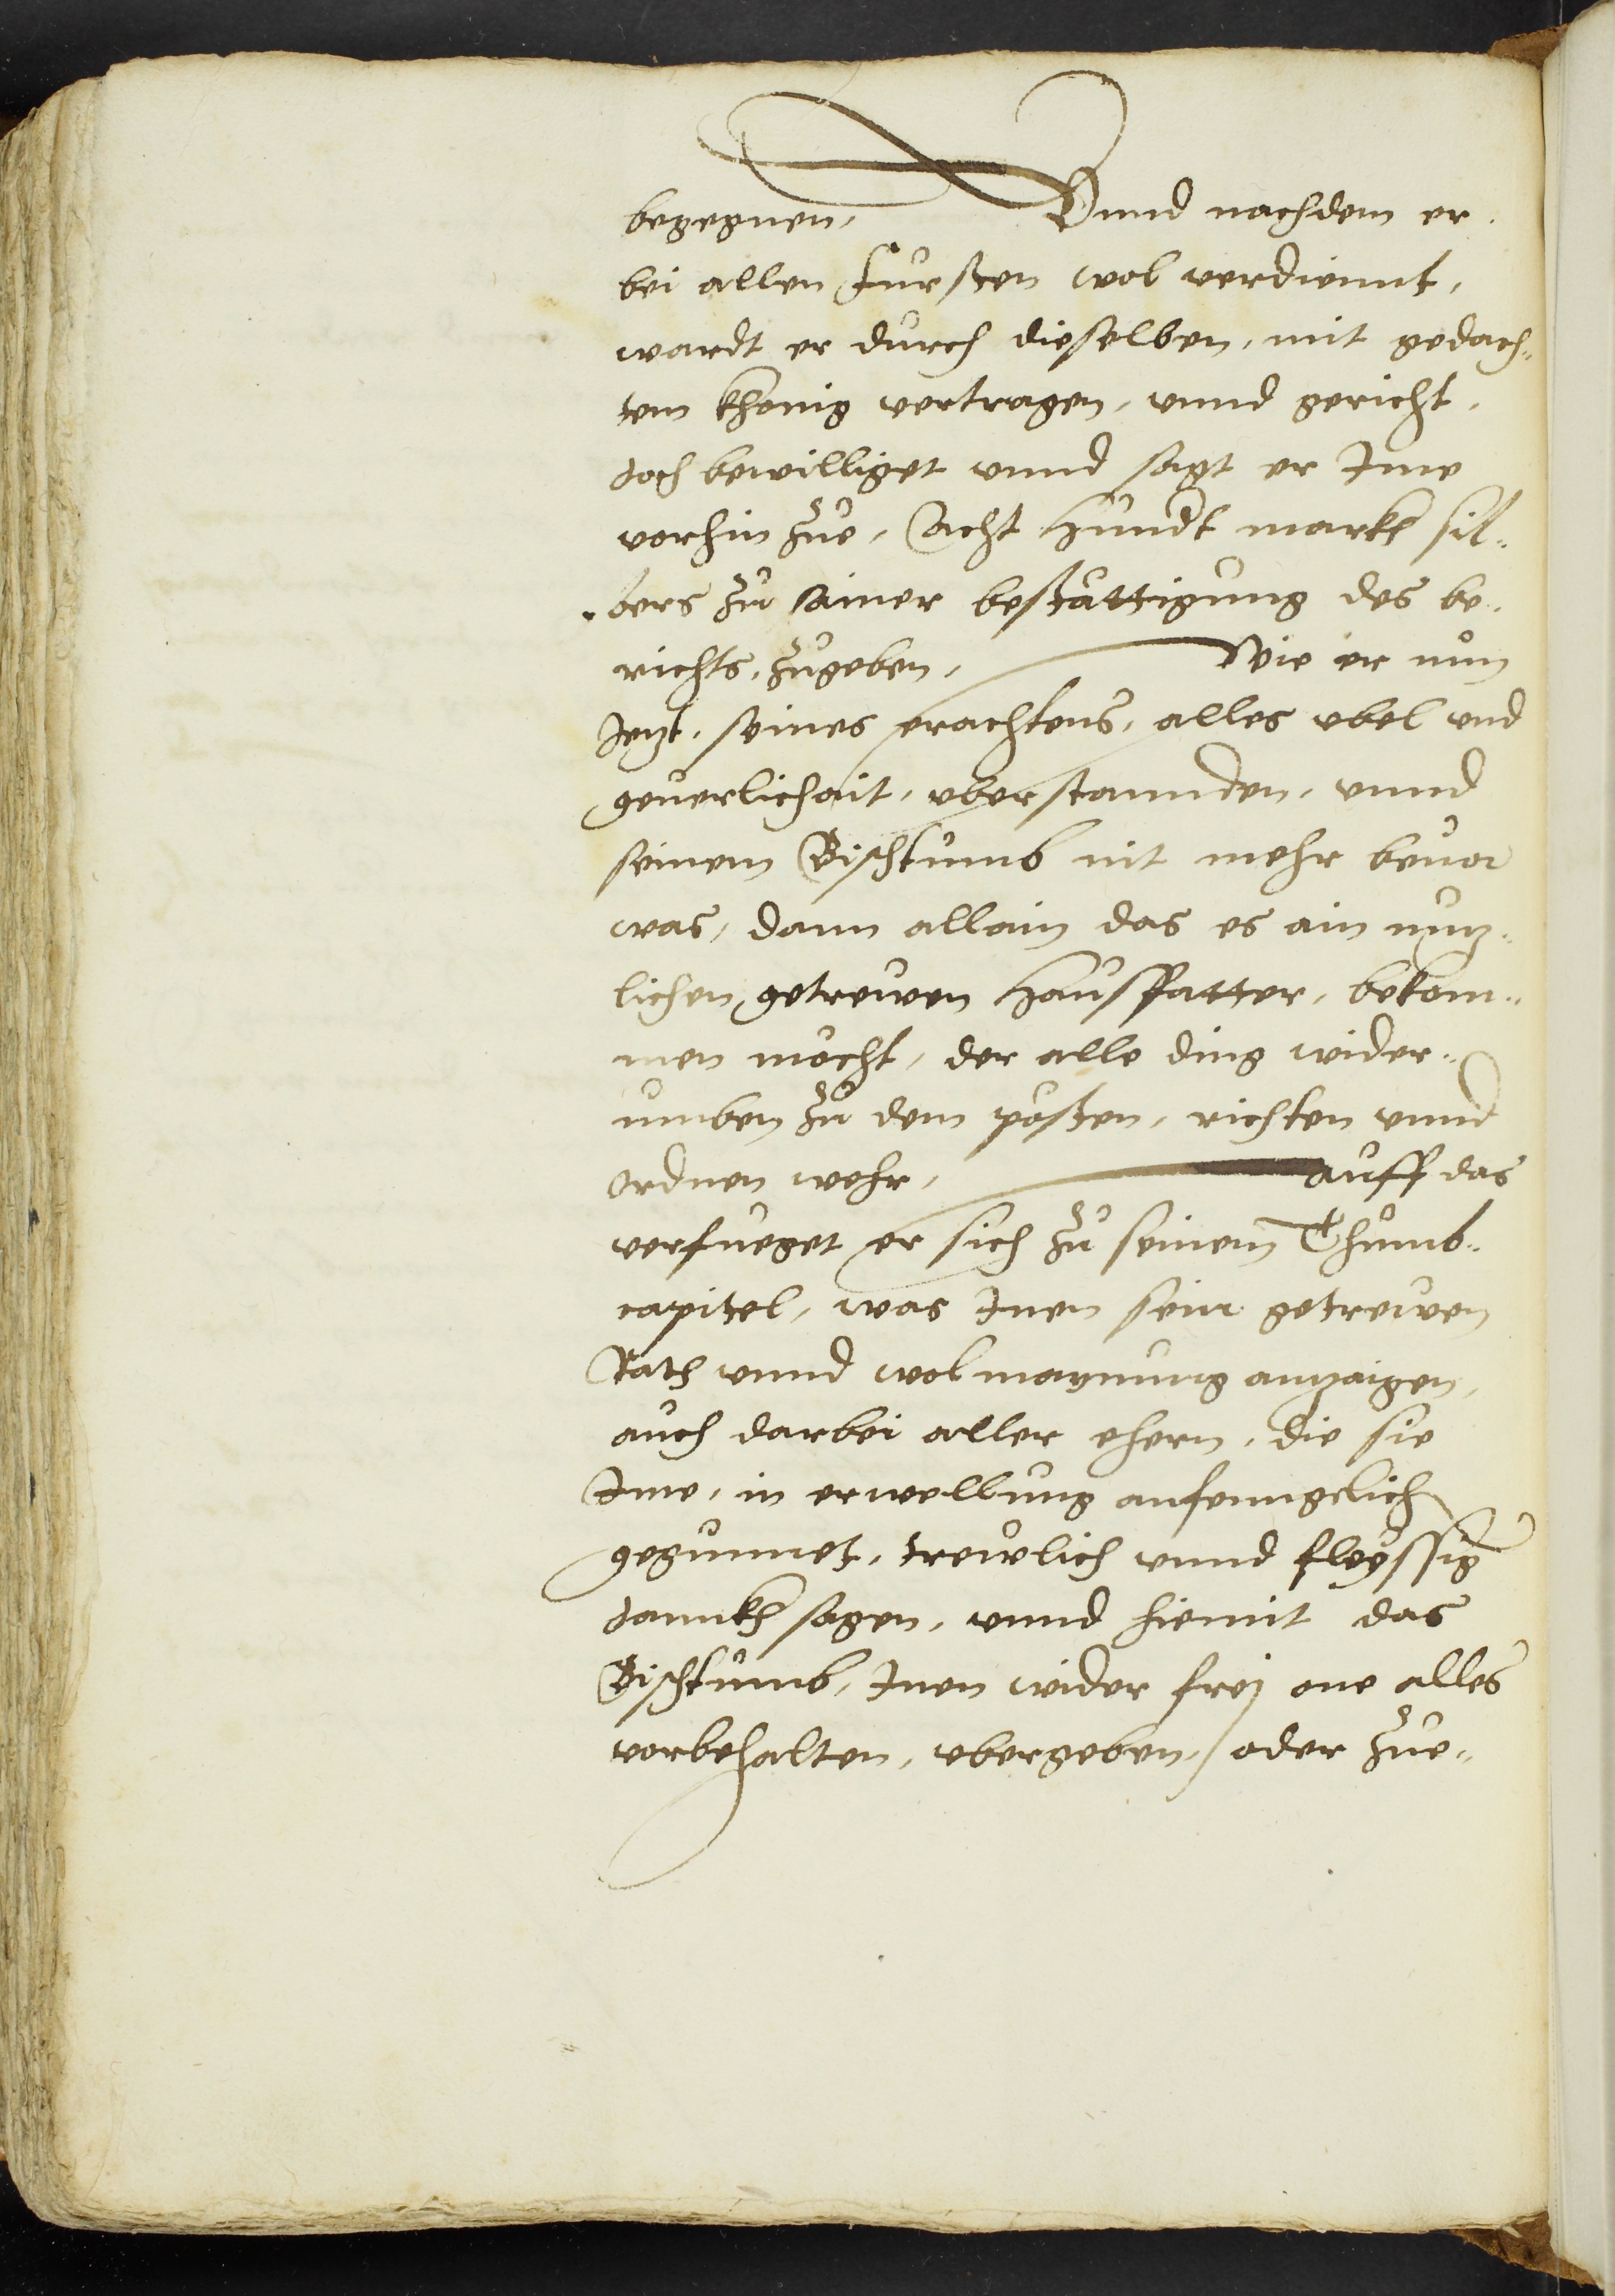 begegnen, Vnnd nachdem er
bei allen Fursten wol verdiennt,
wardt er durch dieselben, mit gedach„
tem khonig vertragen, vnnd gericht,
doch bewilliget vnnd sagt er Ime
vorhin zue, Acht hundt markh sil„
bers zu ainer bestättigung des be„
richts, zugeben, Wie er nun
Jezt, seines erachtens, alles vbel vnd
geuerlichait, vberstannden, vnnd
seinem Bischtumb nit mehr beuor
was, dann allain das es ain nuz„
lichen, getrewen Hausfatter, bekom„
men möcht, der alle ding wider„
umben zu dem posten, richten vnnd
ordnen wehr, Auff das
verfueget er sich zu seinem Thumb„
capitel, was Inen sein getrewen
Rath vnnd wolmaynung anzaigen,
auch darbei aller ehern, die sie
Ime, in erwellung anfenngclich
gegunnet, trewlich vnnd fleyssig
dannkh sagen, vnnd hiemit das
Bischtumb, Inen wider frej one alles
vorbehalten, vbergeben, oder zue„